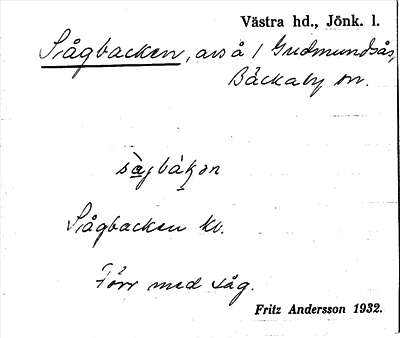 Västra hd., Jönk. l.
Sågbacken, avs å 1 Gudmundsås,
Bäckaby sn.
Sågbacken kv.
Förr med såg.
Fritz Andersson 1932.